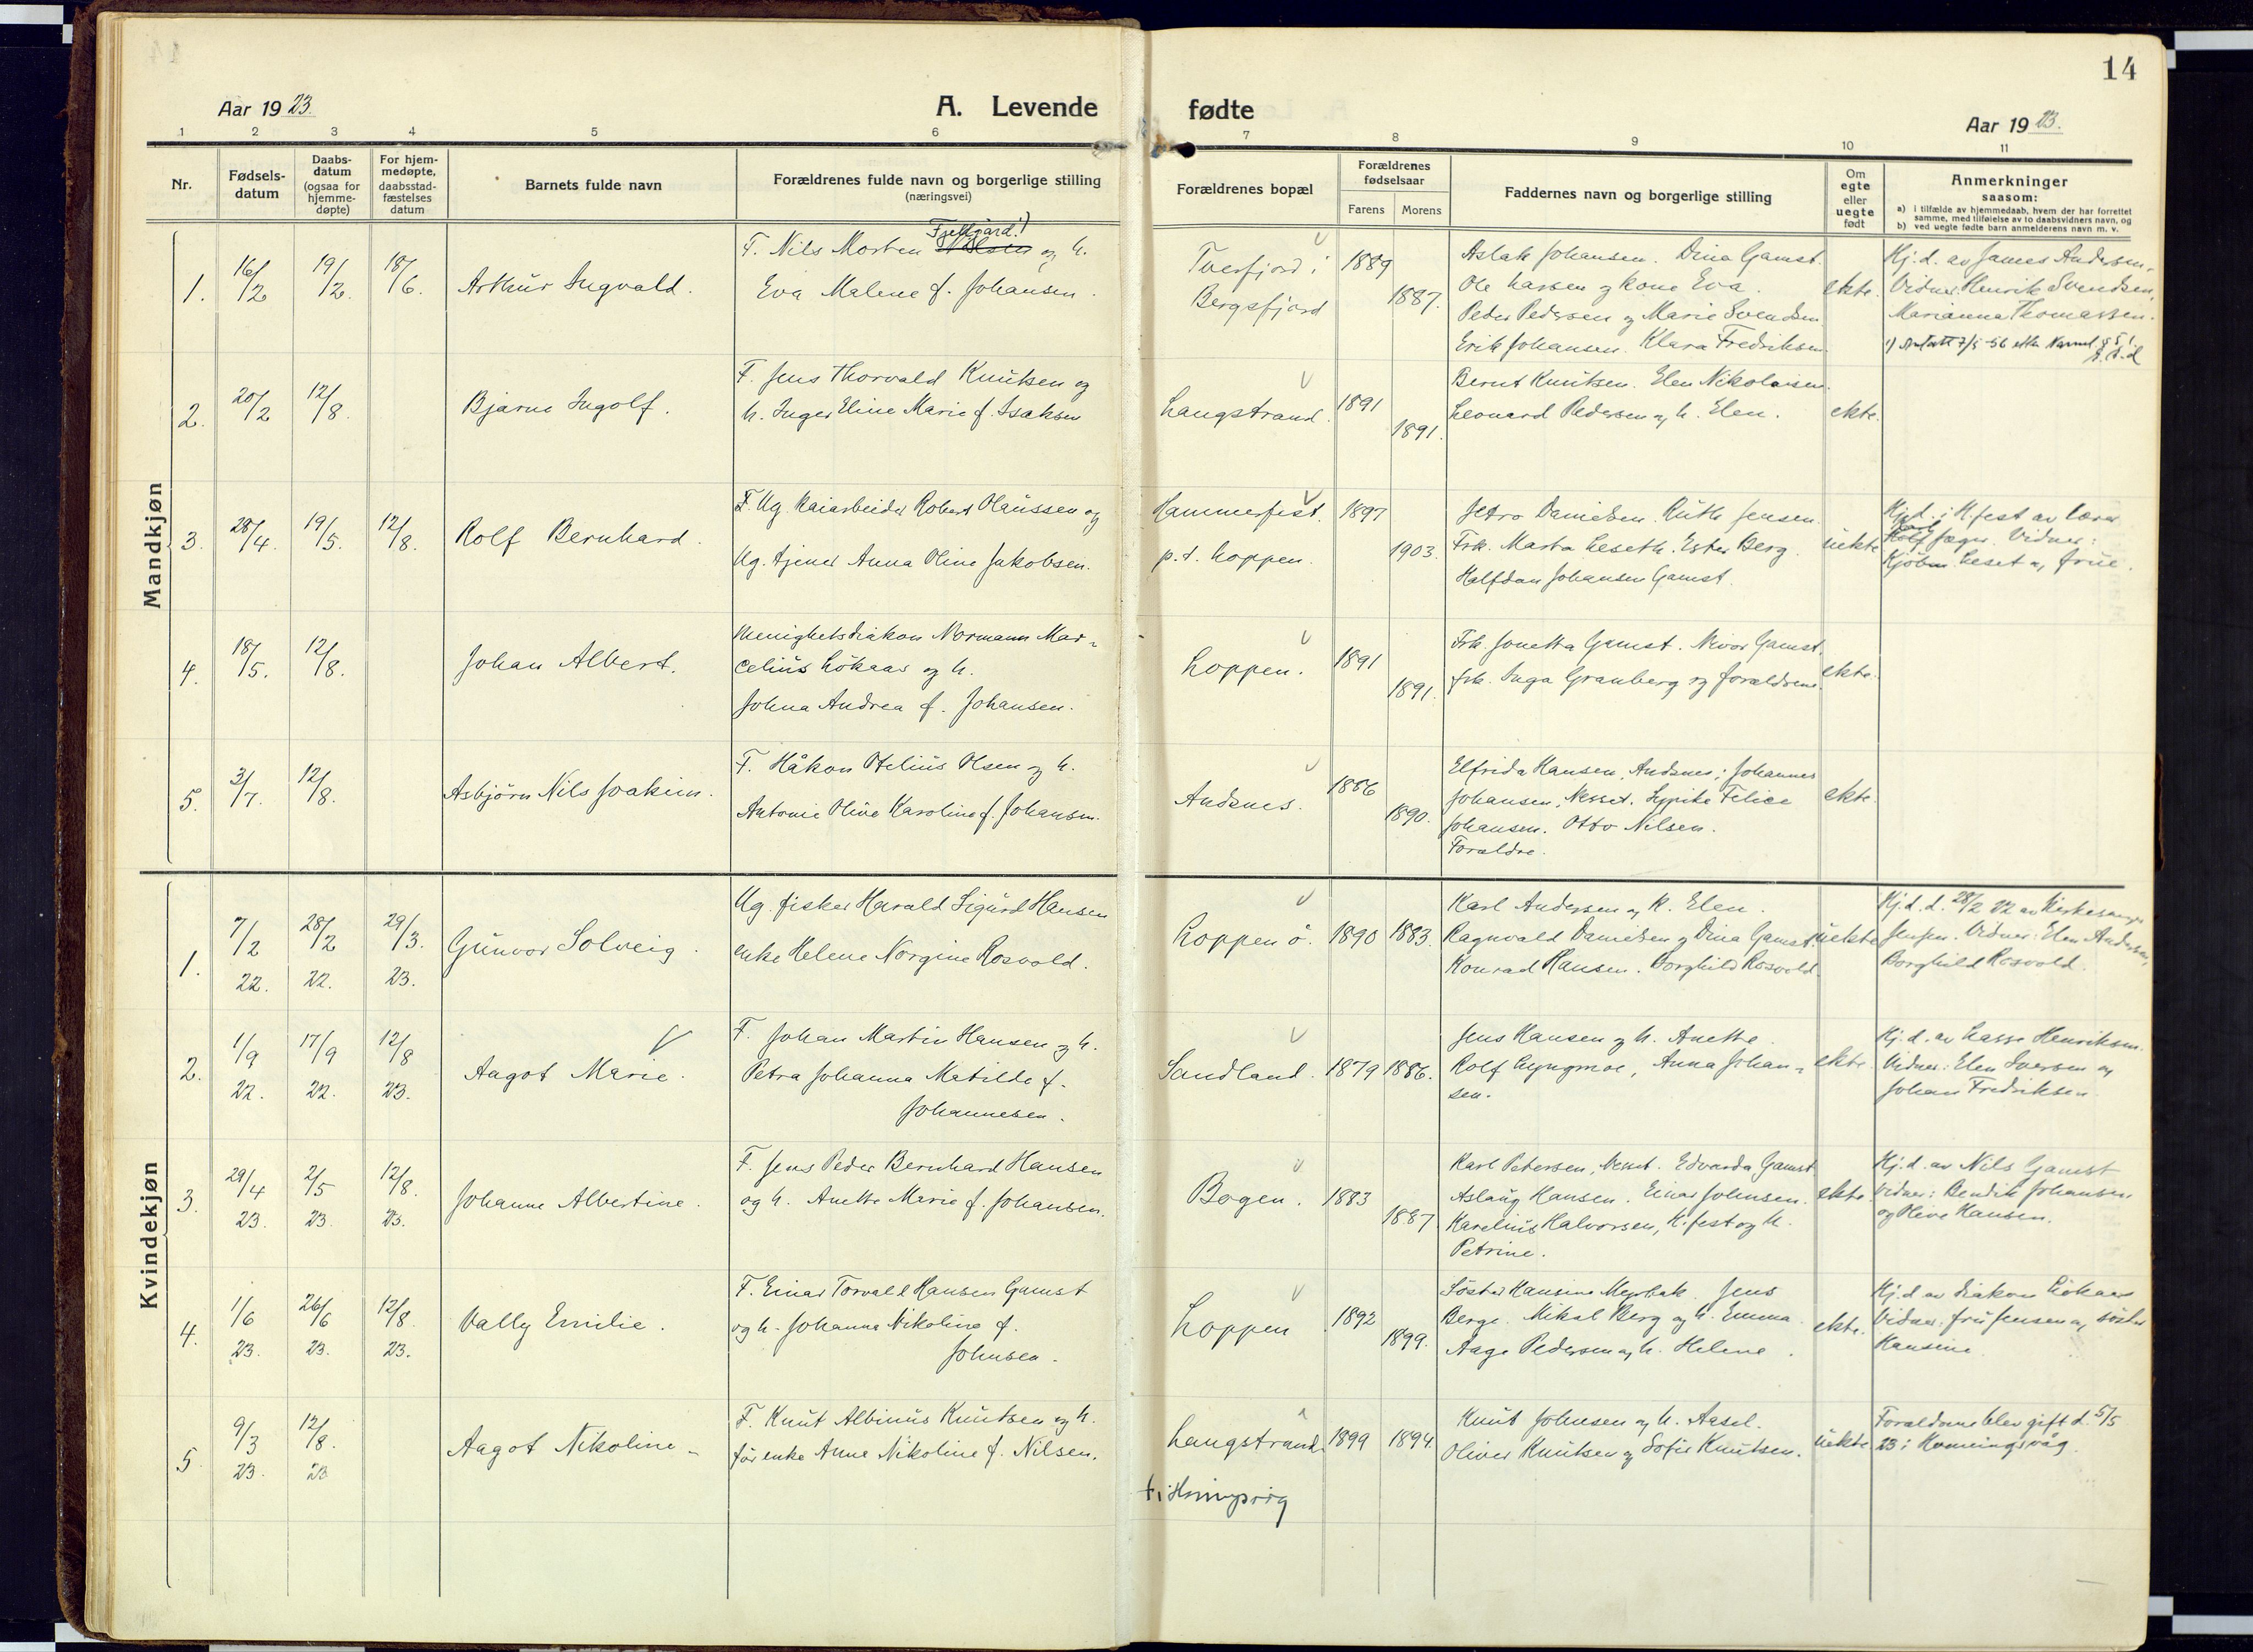 14
Aar 1923.
A. Levende
fødte
Aar 1923.
1 2 3 4 5 6 7 8 9 10 11
Nr.
Fødsels-
datum
Daabs-
datum
(ogsaa for
hjemme-
døpte)
For hjem-
medøpte,
daabsstad-
fæstelses
datum
Barnets fulde navn
Forældrenes fulde navn og borgerlige stilling
(næringsvei)
Forældrenes bopæl
Forældrenes
fødselsaar
Farens Morens
Faddernes navn og borgerlige stilling
Om
egte
eller
uegte
født
Anmerkninger
saasom:
a) i tilfælde av hjemmedaab, hvem der har forrettet
samme, med tilføielse av to daabsvidners navn, og
b) ved uegte fødte barn anmelderens navn m. v.
Mandkjøn
1. 16/2 19/2. 18/6. Arthur Ingvald.
Fjellgård 1)
F. Nils Morten Nilsen og h.
Eva Malene f. Johansen.
Tverfjord i
Bergsfjord
1889 1887.
Aslak Johansen. Dina Gamst.
Ole Larsen og kone Eva.
Peder Pedersen og Marie Svendsen
Erik Johansen. Klara Fredriksen
ekte.
Hj. d. av James Andersen.
Vidner: Henrik Svendsen,
Marianna Thomassen.
1) Antatt 7/5-56 etter Navnel. § 5
2. 20/2 12/8. Bjarne Ingolf.
F. Jens Thorvald Knutsen og
h. Inger Eline Marie f. Isaksen
Langstrand.
1891 1891.
Bernt Knutsen. Elen Nikolaisen.
Leonard Pedersen og h. Elen.
ekte.
3. 28/4. 19/5. 12/8. Rolf Bernhard.
F. Ug. Kaiarbeider Robert Olaussen og
Ug. tjener Anna Oline Jakobsen.
Hammerfest.
p.t. Loppen.
1897 1903.
Jetro Danielsen. Ruth Jensen.
Frk. Marta Leseth. Ester Berg.
Halfdan Johansen Gamst.
uekte
Hj. d. i H.fest av lærer
Rolf Jæger. Vidner:
Kjøbm. Leset og frue.
4. 18/5. 12/8. Johan Albert.
Menighetsdiakon Normann Mar-
celius Lökaas og h.
Johna Andrea f. Johansen.
Loppen.
1891 1891.
Frk. Jonetta Gamst. Nivor Gamst.
frk. Inga Granberg og forældrene.
ekte.
5. 3/7. 12/8. Asbjörn Nils Joakim.
F. Håkon Otelius Olsen og h.
Antonie Oline Karoline f. Johansen.
Andsnes.
1886 1890.
Elfrida Hansen, Andsnes; Johannes
Johansen, Nesset. Felice
Johansen. Otto Nilsen.
Forældre.
ekte.
Kvindekjøn
1. 7/2 22. 28/2 22. 29/3. 23. Gunvor Solveig.
Ug. fisker Harald Sigurd Hansen
enke Helene Norgine Rosvold.
Loppen ö.
1890 1883.
Karl Andersen og k. Elen.
Ragnvald Danielsen og Dina Gamst.
Konrad Hansen. Borghild Rosvold
uekte
Hj. d. d. 28/2 22 av Kirkesanger
Jensen. Vidner: Elen Andersen,
Borghild Rosvold.
2. 1/9 22. 17/9 22. 12/8 23. Aagot Marie.
F. Johan Martin Hansen og h.
Petra Johanna Matilde f.
Johannesen.
Sandland.
1879 1886.
Jens Hansen og h. Anette.
Rolf Lyngmoe, Anna Johan-
sen.
ekte.
Hj. d. av Lasse Henriksen.
Vidner: Elen Iversen og
Johan Fredriksen
3. 29/4 23. 2/5 23. 12/8. 23. Johanne Albertine.
F. Jens Peder Bernhard Hansen
og h. Anette Marie f. Johansen.
Bogen.
1883 1887
Karl Petersen, Nesset. Edvarda Gamst
Aslaug Hansen. Einar Johnsen.
Karelius Halvorsen, H.fest og h.
Petrine.
ekte.
Hj. d. av Nils Gamst
Vidner: Bendik Johansen
og Oline Hansen.
4. 1/6 23. 26/6 23. 12/8. 23. Vally Emilie.
F. Einar Torvald Hansen Gamst
og h. Johanna Nikoline f.
Johnsen.
Loppen
1892 1899.
Söster Hansine Jens
Berge. Mikal Berg og h. Emma
Aage Pedersen og h. Helene.
ekte.
Hj. d av diakon Lökaas
Vidner: fru Jensen og söster
Hansine.
5 9/3 23. 12/8. 23 Aagot Nikoline
F. Knut Albinus Knutsen og h.
før enke Anna Nikoline f. Nilsen.
Langstrand.
f. i Honningsvåg
1899 1894.
Knut Johnsen og h. Aasel.
Oliver Knutsen og Sofie Knutsen.
uekte
Forældrene blev gift d. 5/5
23 i Honningsvåg.